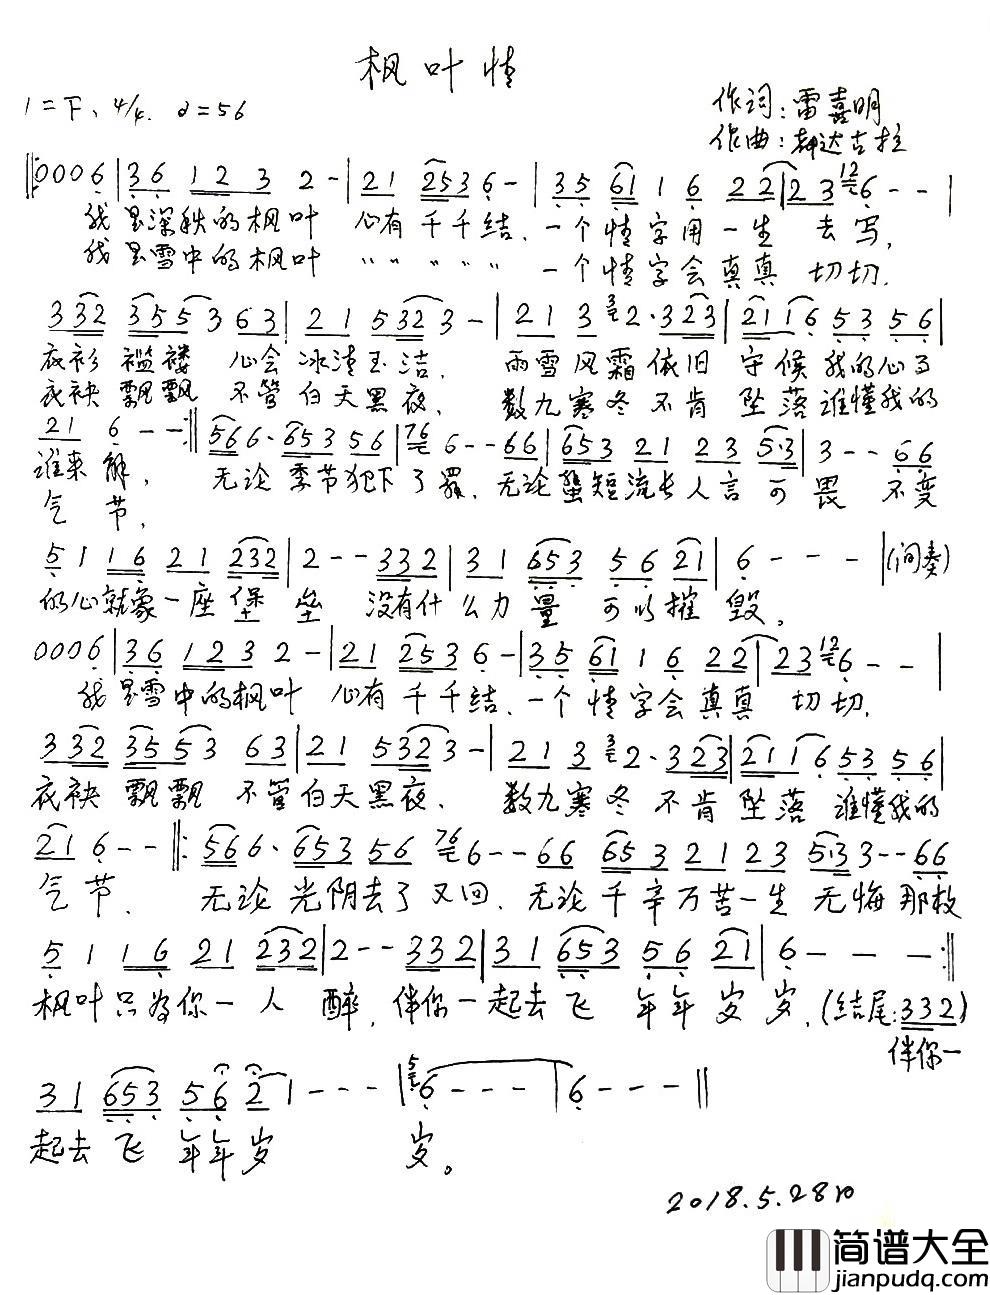 枫叶情
1=下、4/4. d=56
作词:雷喜明
作曲:都达古拉
0006|36 123 2-|21 2536-|35 61 1 6 22|23 12 6--|
我是深秋的枫叶 心有千千结、一个情字用一生 去写,
我是雪中的枫叶 〃 〃 〃 〃 〃 一个情字会真真 切切.
332 3553 63|21 5323-|21 3 3 2·323|2116 53 56|
衣衫褴褛 心会冰清玉洁、 雨雪风霜依旧 守候我的心事
衣袂飘飘 不管白天黑夜、 数九寒冬不肯 坠落谁懂我的
21 6--:||566·653 56|76 6--66|653 21 23 5·3|3--66|
谁来解, 无论季节犯下了罪、无论蜚短流长人言可畏 不变
气 节,
5 1 16 21 232|2--332|31 653 56 21|6---|(间奏)
的心就象一座堡 垒 没有什么力量 可以摧 毁。
0006|36 123 2-|21 2536-|35 61 1 6 22|23 12 6--|
我是雪中的枫叶 心有千千结、一个情字会真真 切切.
332 3553 63|21 5323-|21 3 3 2·323|2116 53 56|
衣袂飘飘 不管白天黑夜、 数九寒冬 不肯坠落 谁懂我的
21 6--||:566·653 56 76 6--66 653 21 23 5·3 3--66
气节、 无论光阴去了又回、无论千辛万苦一生无悔那枚
5 1 16 21 232|2--332|31 653 56 21|6---:||
枫叶只为你一人 醉, 伴你一起去飞 年年岁 岁、(结尾:332)
伴你一
31 653 56 2 1---|5 6---|6---||
起去飞 年年岁 岁。
2018.5.28日
简谱大全
jianpudq.com